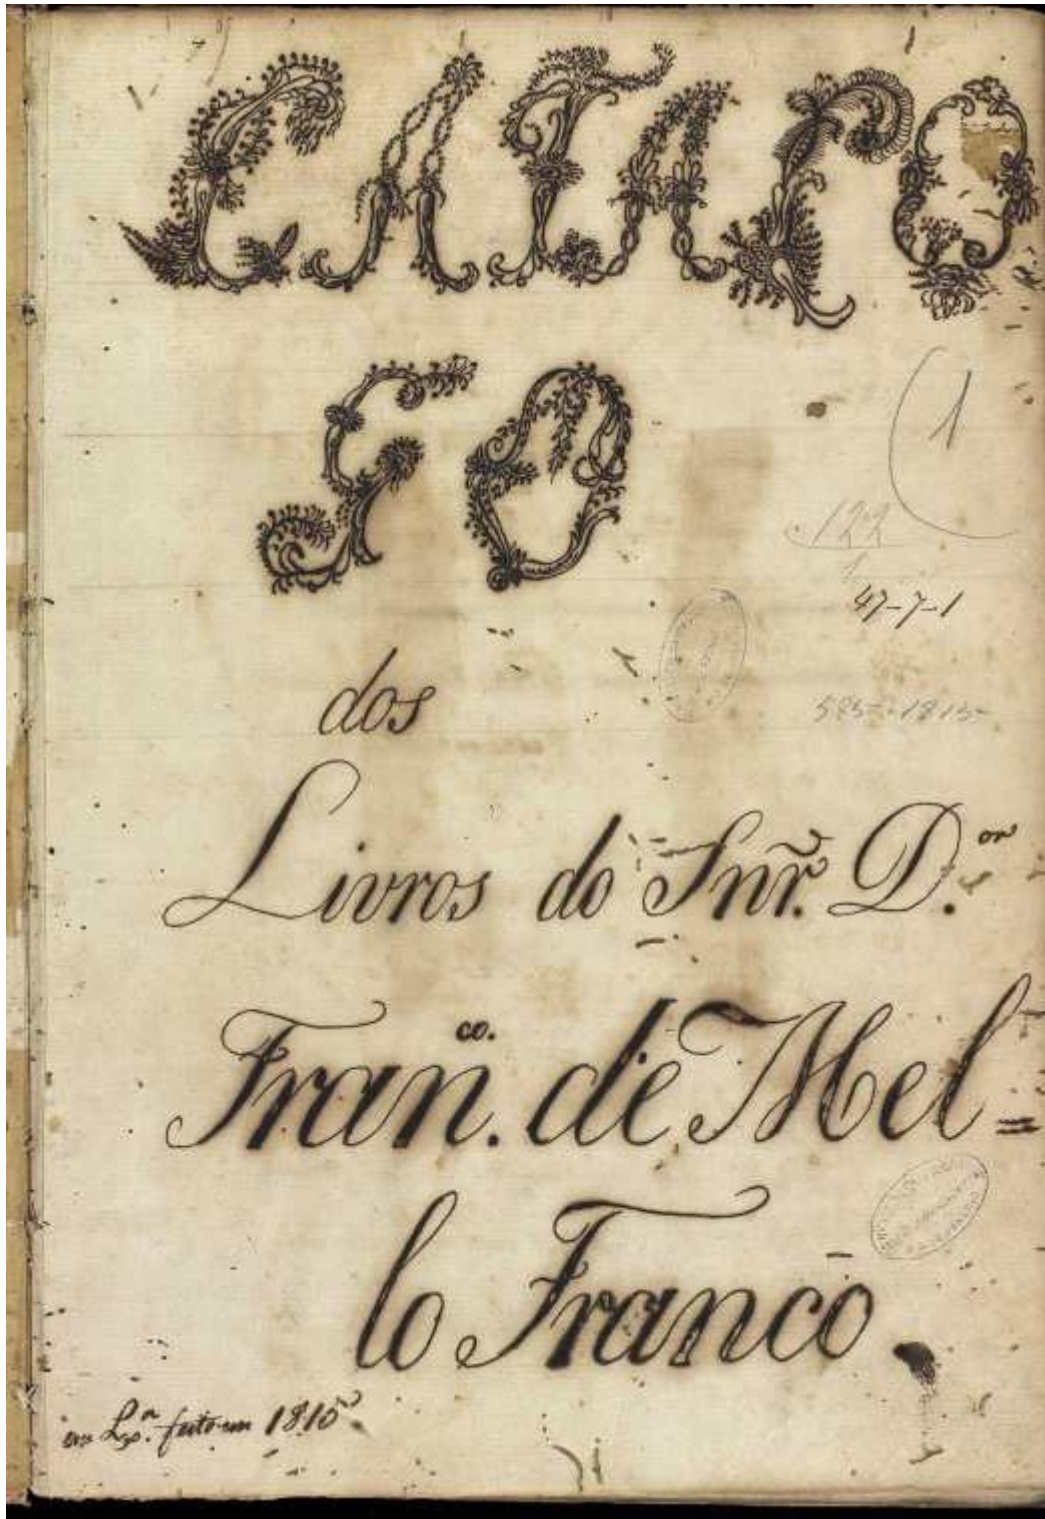 CATALO
GO
(1
122
1
47-7-1
dos
Livros do Snr̃. D.or
Fran.co de Mel=
lo Franco.
em Lx.a feito em 1815